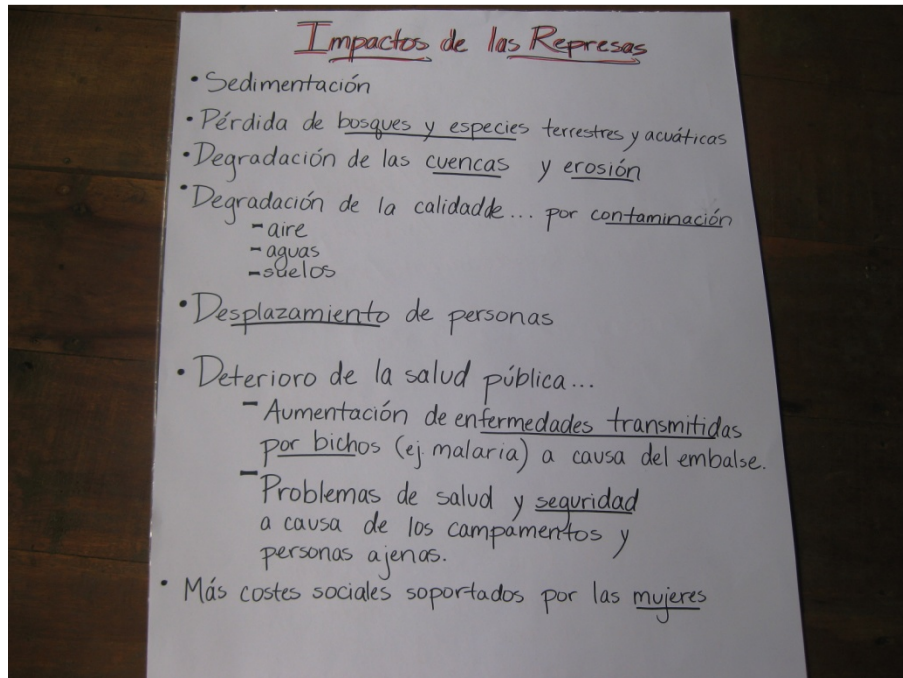 Impactos de las Represas
• Sedimentación
• Pérdida de bosques y especies terrestres y acuáticas
• Degradación de las cuencas y erosión
• Degradación de la calidadde... por contaminación
- aire
- aguas
- suelos
• Desplazamiento de personas
• Deterioro de la salud pública...
- Aumentación de enfermedades transmitidas
por bichos (ej. malaria) a causa del embalse.
- Problemas de salud y seguridad
a causa de los campamentos y
personas ajenas.
• Más costes sociales soportados por las mujeres